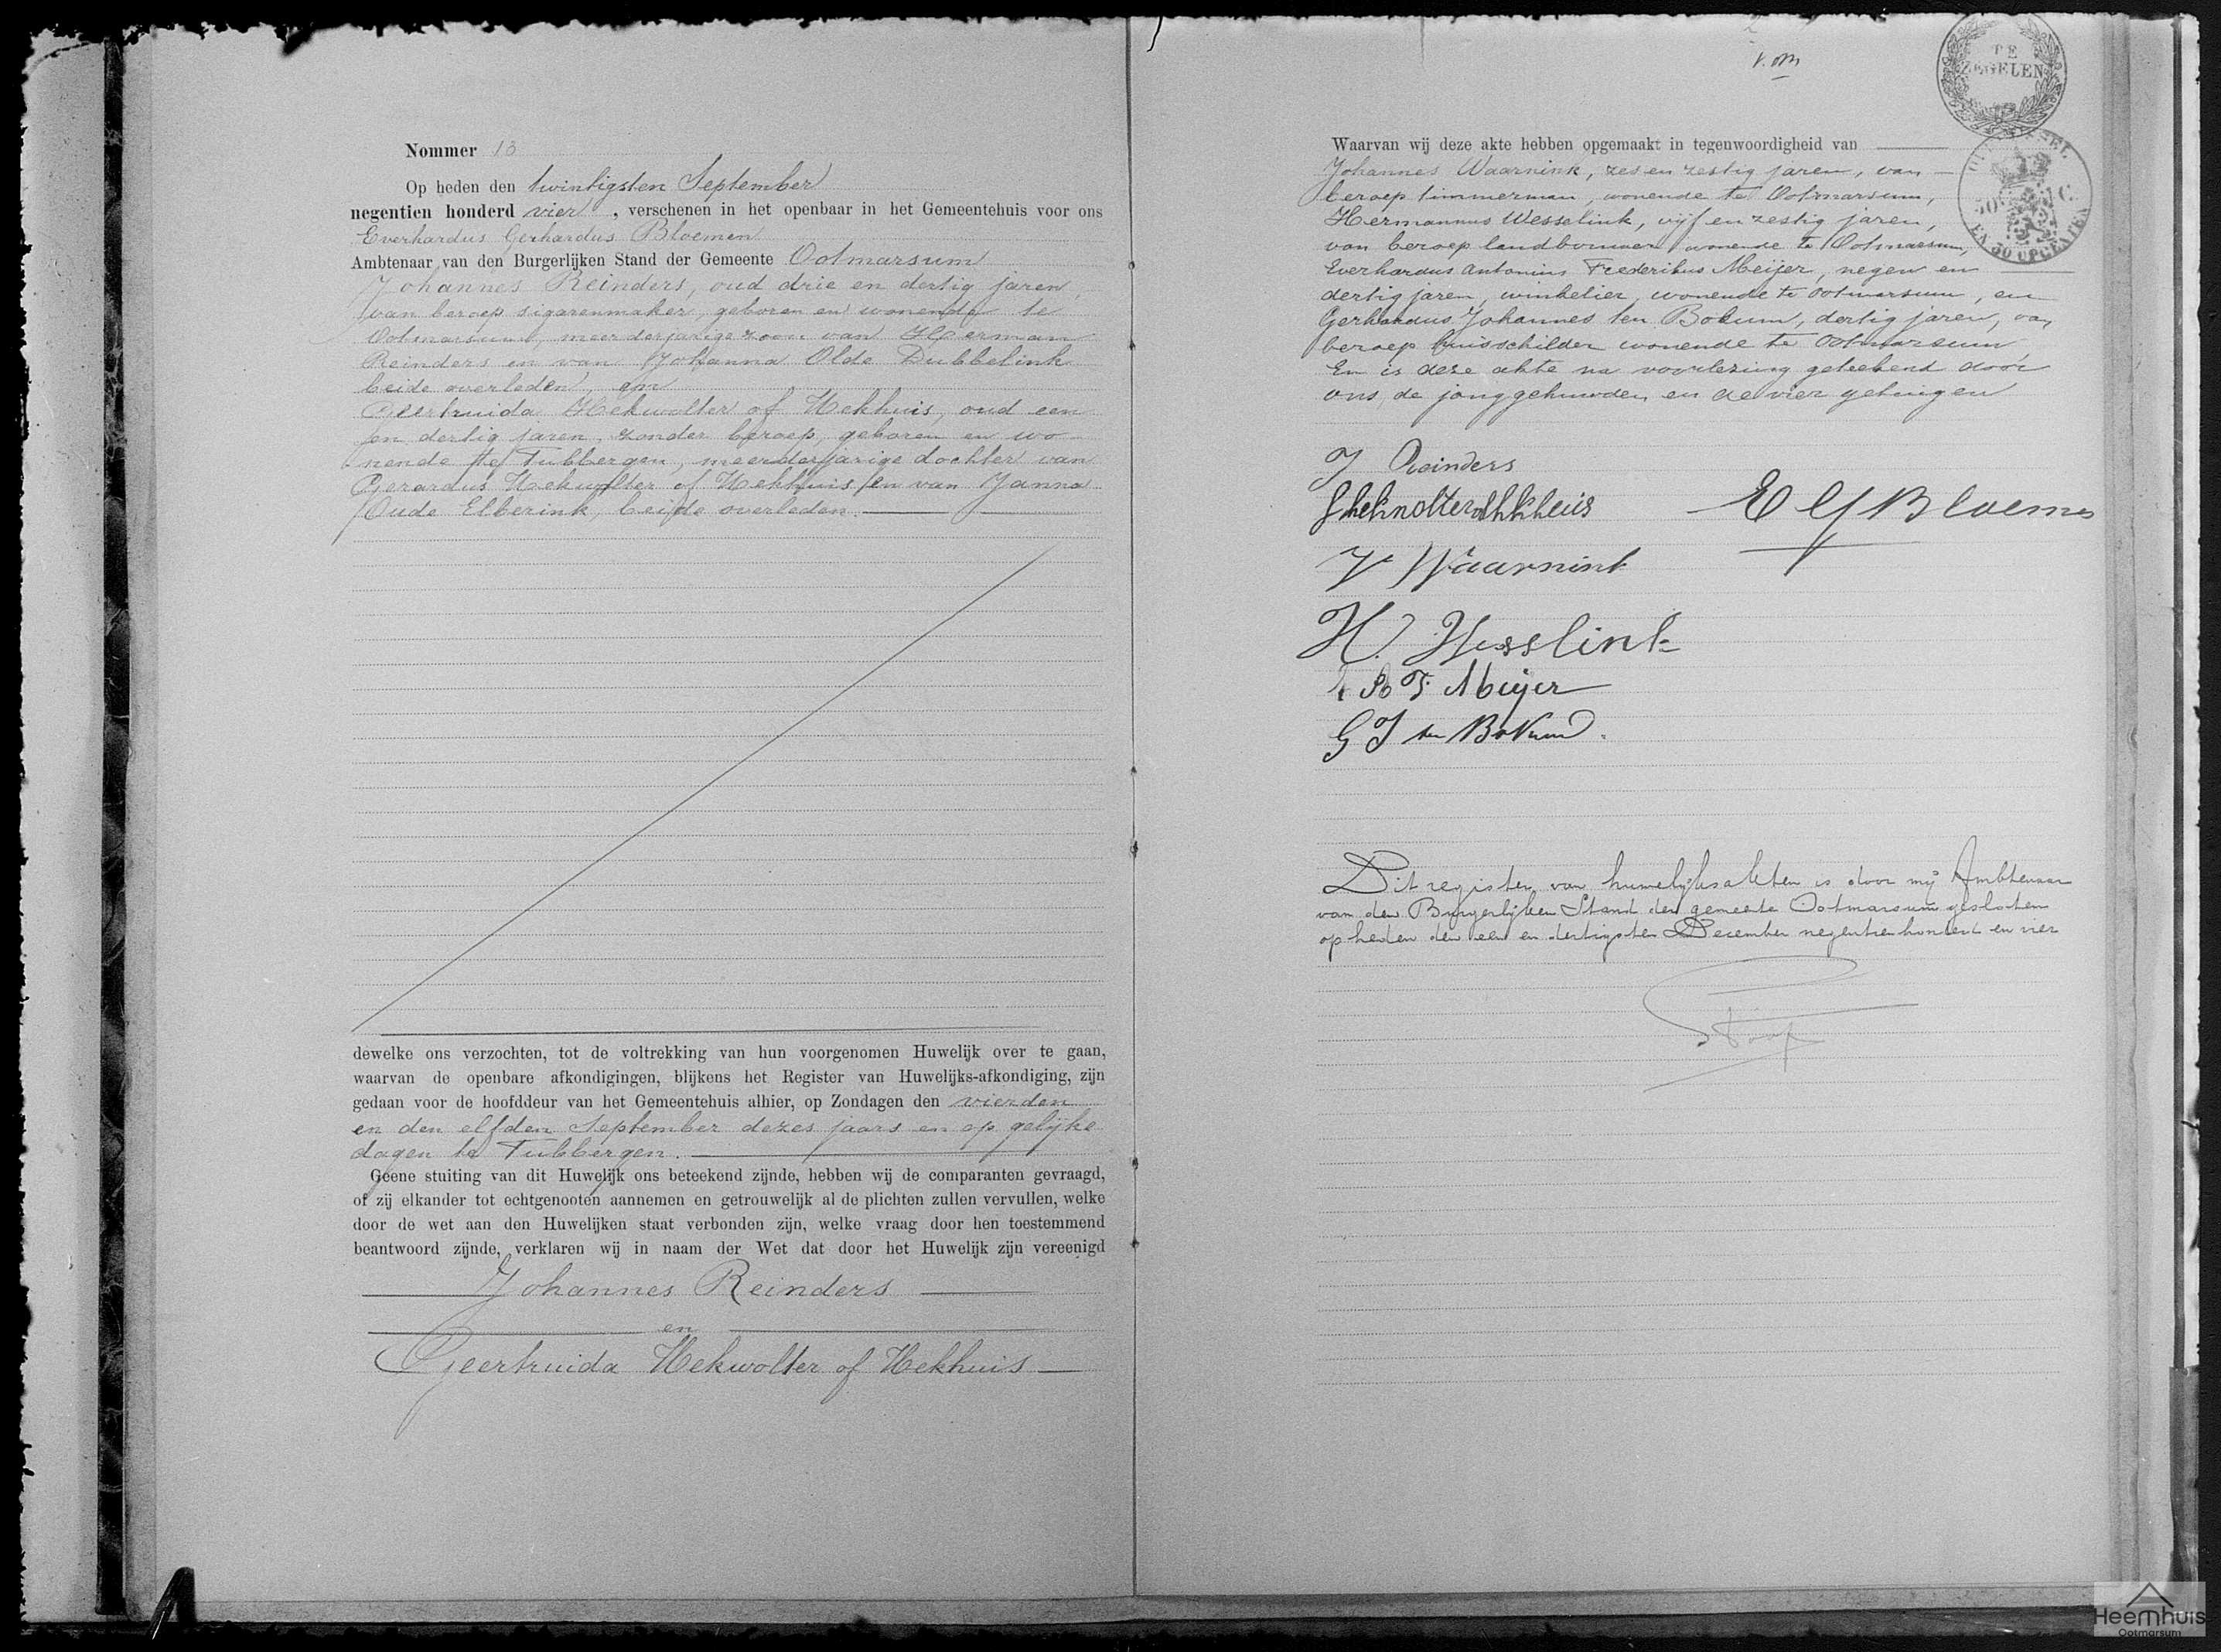 Nommer 13
Op heden den twintigsten September
negentien honderd vier, verschenen in het openbaar in het Gemeentehuis voor ons
Everhardus Gerhardus Bloemen
Ambtenaar van den Burgerlijken Stand der Gemeente Ootmarsum
Johannes Reinders, oud drie en dertig jaren,
van beroep sigarenmaker, geboren en wonende te
Ootmarsum, meerderjarige zoon van Herman
Reinders en van Johanna Olde Dubbelink
beide overleden, en
Geertruida Hekwolter of Hekhuis, oud een
en dertig jaren, zonder beroep, geboren en wo-
nende te Tubbergen, meerderjarige dochter van
Gerardus Hekwolter of Hekhuis en van Janna
Oude Elberink, beide overleden.
dewelke ons verzochten, tot de voltrekking van hun voorgenomen Huwelijk over te gaan,
waarvan de openbare afkondigingen, blijkens het Register van Huwelijks-afkondiging, zijn
gedaan voor de hoofddeur van het Gemeentehuis alhier, op Zondagen den vierden
en den elfden September dezes jaars en op gelijke
dagen te Tubbergen.
Geene stuiting van dit Huwelijk ons beteekend zijnde, hebben wij de comparanten gevraagd,
of zij elkander tot echtgenooten aannemen en getrouwelijk al de plichten zullen vervullen, welke
door de wet aan den Huwelijken staat verbonden zijn, welke vraag door hen toestemmend
beantwoord zijnde, verklaren wij in naam der Wet dat door het Huwelijk zijn vereenigd
Johannes Reinders
en
Geertruida Hekwolter of Hekhuis
TE
ZEGELEN
Waarvan wij deze akte hebben opgemaakt in tegenwoordigheid van
Johannes Waarnink, zes en zestig jaren, van
beroep timmerman, wonende te Ootmarsum,
Hermannus Wesselink, vijf en zestig jaren,
van beroep landbouwer wonende te Ootmarsum,
Everhardus Antonius Frederikus Meijer, negen en
dertig jaren, winkelier, wonende te Ootmarsum, en
Gerhardus Johannes ten Bokum, dertig jaren, van
beroep huisschilder wonende te Ootmarsum
En is deze akte na voorlezing geteekend door
ons, de jonggehuwden en de vier getuigen
EN 50 OPCENTEN
J Reinders
G hekwolter of hekhuis
E G Bloemen
J Waarnink
H. Wesslink
E A F Meijer
G J ten Bokum.
Dit register van huwelijksakten is door mij Ambtenaar
van den Burgerlijken Stand der gemeente Ootmarsum gesloten
op heden den een en dertigsten December negentienhonderd en vier
Heemhuis
Ootmarsum